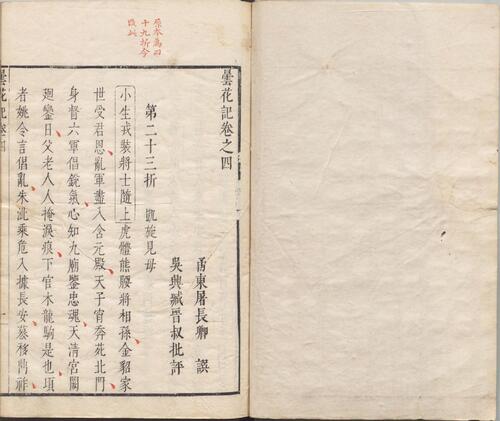 原本為四
十九折今
改此
曇花記卷之四
甬東屠長卿譔
吳興臧晉叔批評
第二十三折 凱旋見母
小生戎裝將士隨上虎體熊腰將相孫金貂家
世受君恩亂軍盡入含元殿天子宵奔苑北門
身督六軍倡銳氣心知九廟鑒忠魂天清宮闕
迴鑾日父老人人掩淚痕下官木龍駒是也頃
者姚令言倡亂朱泚乘危入據長安暮移鼎祚
曇花記卷四
一